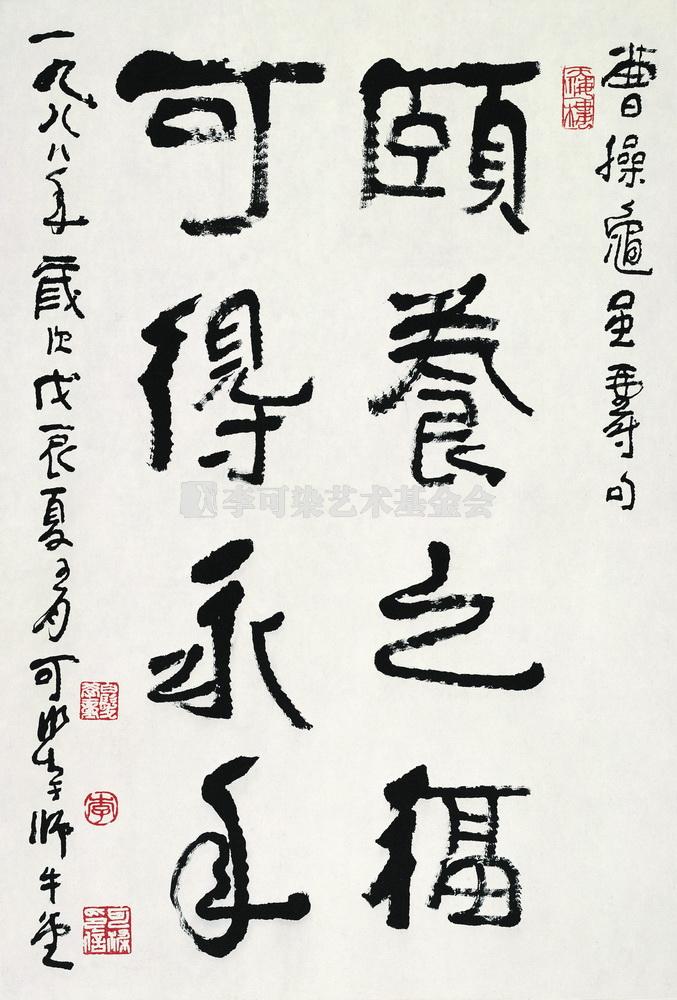 曹操龜虽壽句
頤養之福
可得永年
一九八八年歲次戊辰夏五月可染于師牛堂
白髮學童
李
李可染艺术基金会